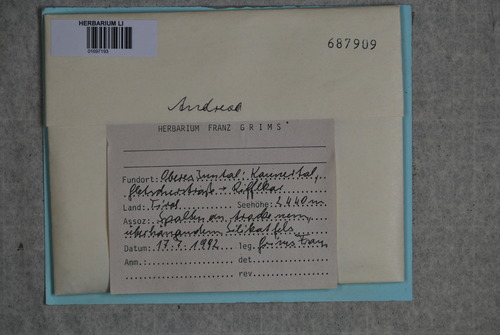 HERBARIUM LI
687909
Andreae
HERBARIUM FRANZ GRIMS
Fundort: Oberes Inntal: Kaunertal,
Gletscherstraße → Riffelkar
Land: Tirol Seehöhe: 2440 m
Assoz: Spalten an trockenem,
überhängendem Silikatfels
Datum: 17.7.1982 leg. Grims Franz
Anm.: det.
rev.